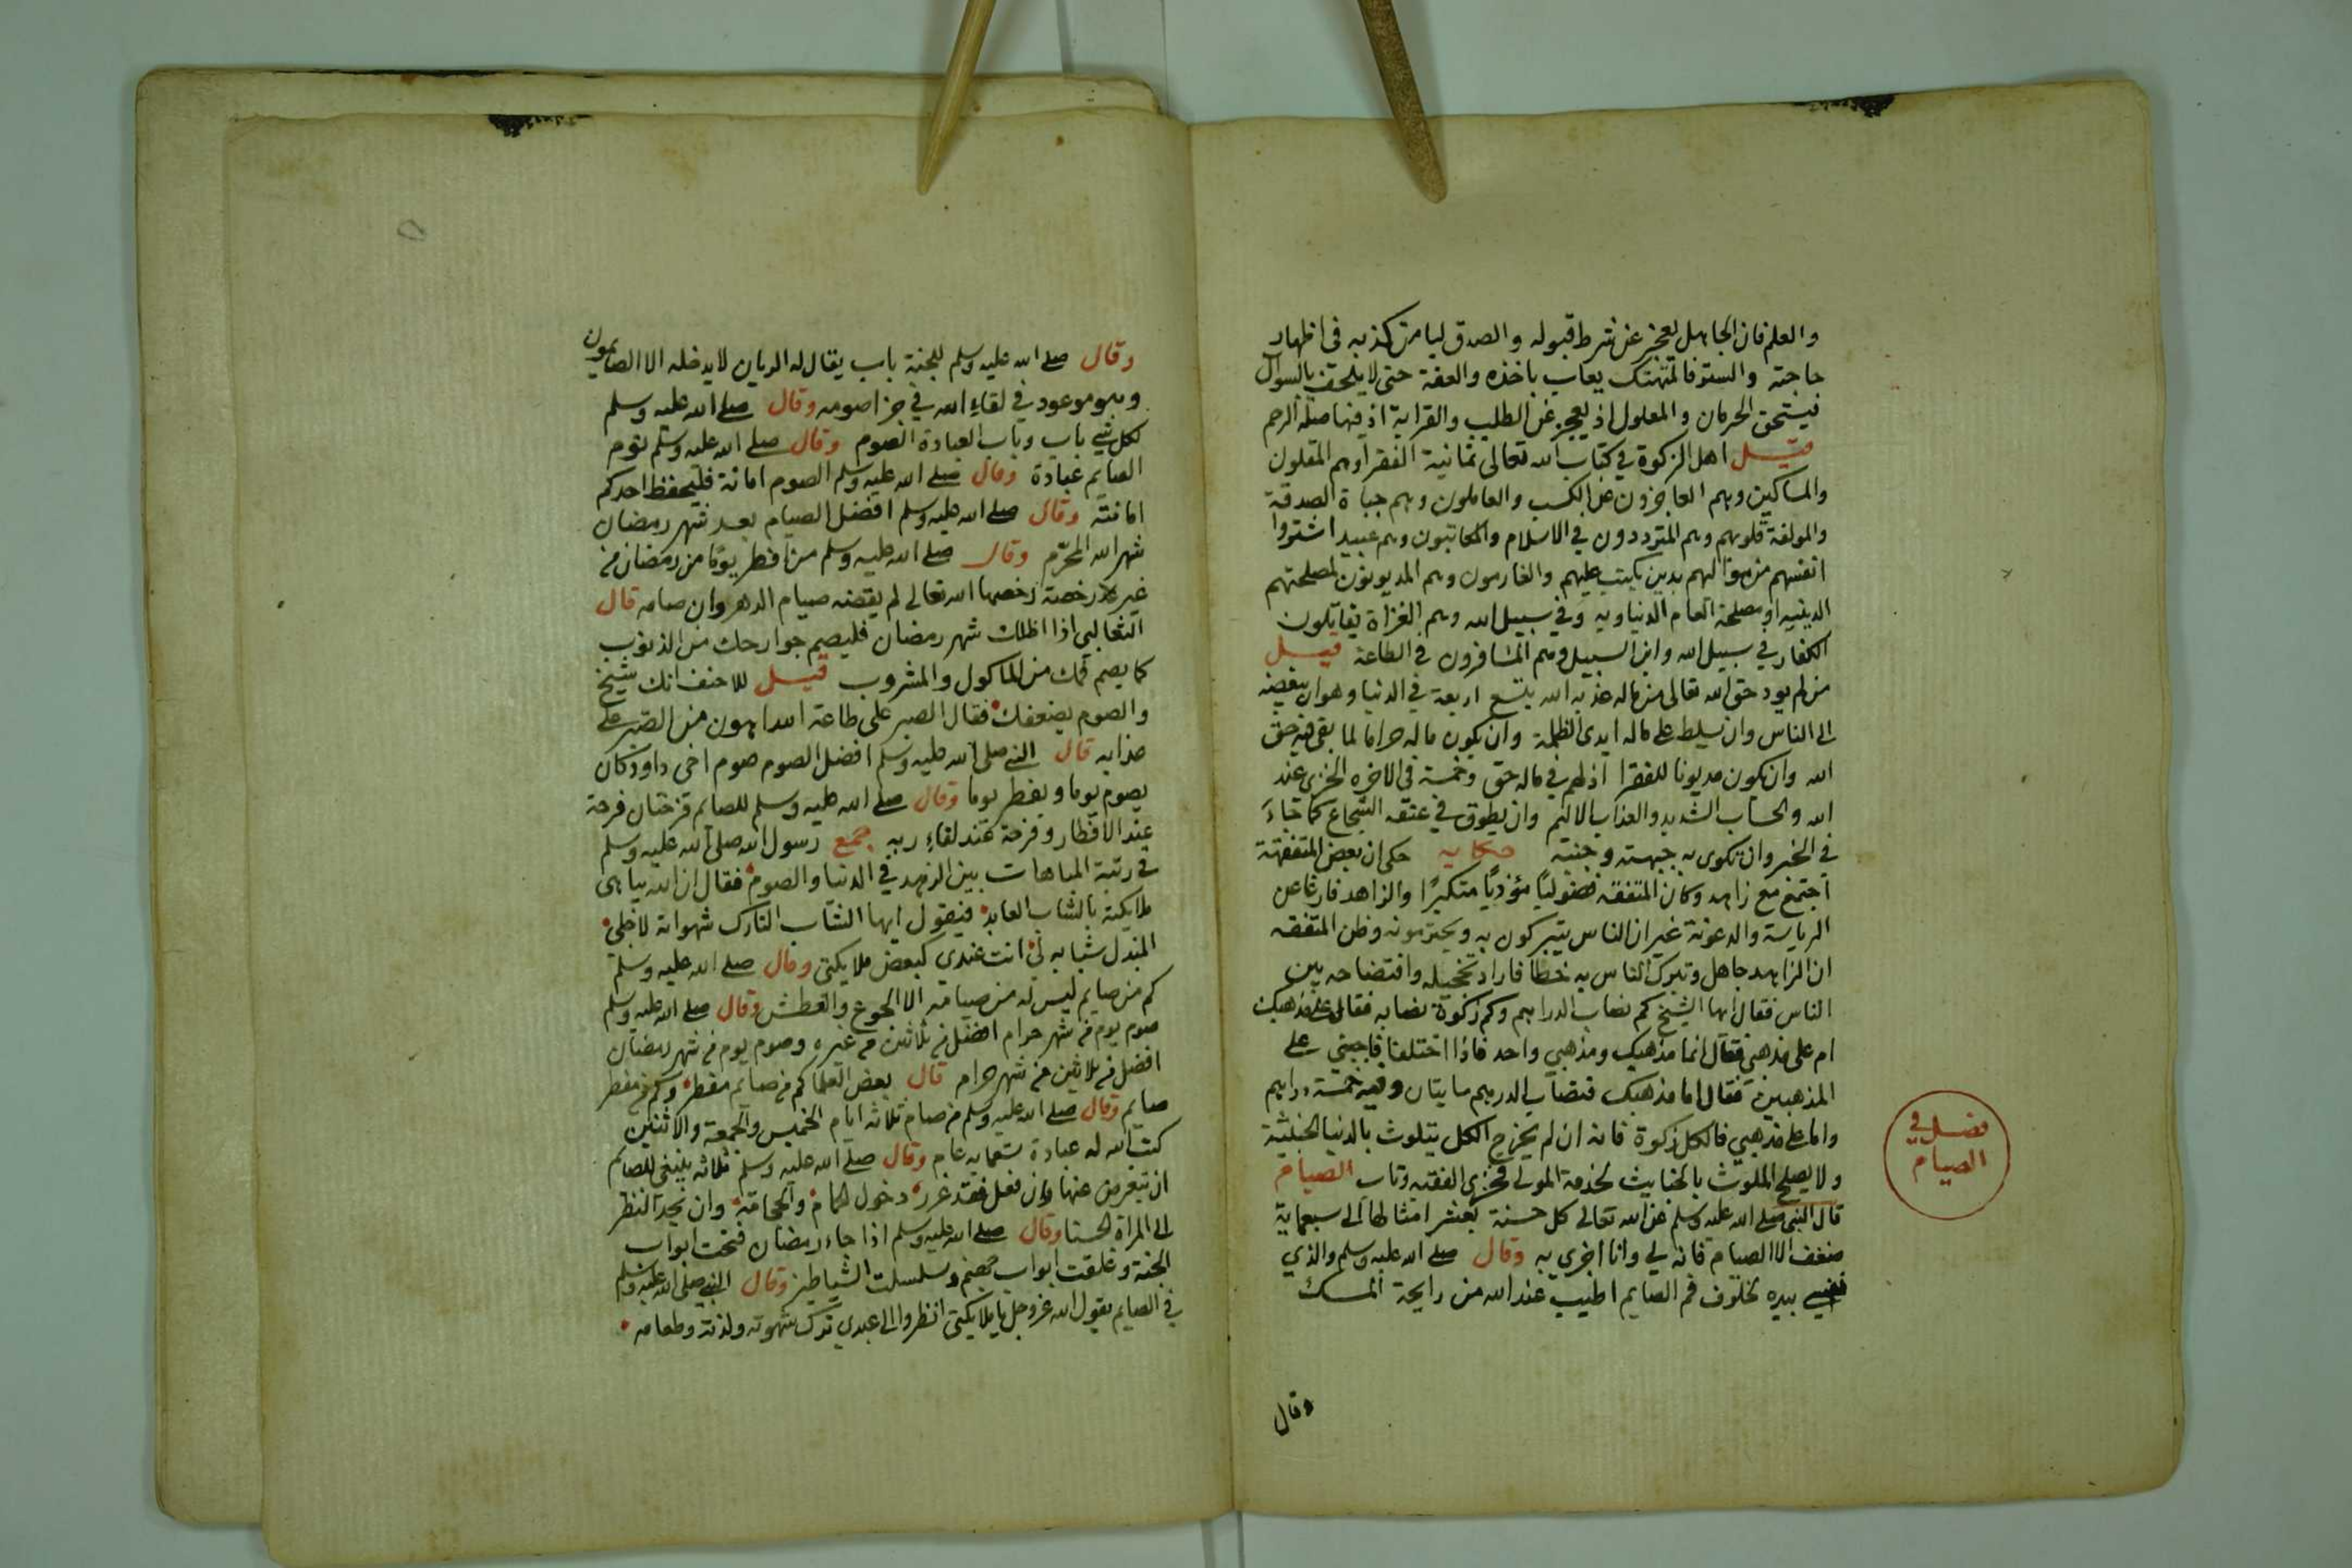 والعلم فان الجاهل يعجز عن شرط قبوله والصدق ليامن كذبه في اظهار
حاجته والستر فالمتهتك يعاب باخذه والعفة حتى لا يلحف بالسوال
فيستحق الحرمان والمعلول اذ يعجز عن الطلب والقرابة اذ فيها صلة الرحم
قيل اهل الزكوة في كتاب الله تعالى ثمانية الفقرا وهم المقلون
والمساكين وهم العاجزون عن الكسب والعاملون وهم جباة الصدقة
والمولفة قلوبهم وهم المترددون في الاسلام والمكاتبون وهم عبيد اشتروا
انفسهم من موالهم بدين يكتب عليهم والغارمون وهم المديونون لمصلحتهم
الدينيه او مصلحة العام الدنياويه وفي سبيل الله وهم الغزاة يقاتلون
الكفار في سبيل الله وابن السبيل وهم المسافرون في الطاعة قيل
من لم يود حق الله تعالى من ماله عذبه الله بتسع اربعة في الدنيا وهو ان يبغضه
الى الناس وان يسلط على ماله ايدى الظلمة وان يكون ماله حراما لما بقى فيه حق
الله وان يكون مديونا للفقرا اذ لهم في ماله حق وخمسة في الاخره الخزى عند
الله والحساب الشديد والعذاب الاليم وان يطوق في عنقه الشجاع كما جاء
في الخبر وان تكوى به جبهته وجنبه حكايه حكى ان بعض المتفقهة
اجتمع مع زاهد وكان المتفقه فضوليًا مؤذيًا متكبرًا والزاهد فارغا عن
الرياسة والرعونة غير ان الناس يتبركون به ويحترمونه وظن المتفقه
ان الزاهد جاهل وتبرك الناس به خطا فاراد تخجيله وافتضاحه بين
الناس فقال ايها الشيخ كم نصاب الدراهم وكم زكوة نصابه فقال على مذهبك
ام على مذهبي فقال انما مذهبك ومذهبي واحد فاذا اختلفا فاجبني على
المذهبين فقال اما مذهبك فنصاب الدرهم مايتان وفيه خمسة دراهم
واما على مذهبي فالكل زكوة فانه ان لم يخرج الكل يتلوث بالدنيا الخبيثة
ولا يصلح الملوث بالخبايث لخدمة المولى فخزى الفقيه وتاب الصيام
فصل في
الصيام
قال النبي صلى الله عليه وسلم عن الله تعالى كل حسنة بعشر امثالها الى سبعماية
ضعف الا الصيام فانه لي وانا اجزي به وقال صلى الله عليه وسلم والذي
نفسي بيده لخلوف فم الصايم اطيب عند الله من رايحة المسك
وقال
وقال صلى الله عليه وسلم للجنة باب يقال له الريان لا يدخله الا الصايمون
وهو موعود في لقاء الله في جزا صومه وقال صلى الله عليه وسلم
لكل شي باب وباب العبادة الصوم وقال صلى الله عليه وسلم نوم
الصايم عبادة وقال صلى الله عليه وسلم الصوم امانة فليحفظ احدكم
امانته وقال صلى الله عليه وسلم افضل الصيام بعد شهر رمضان
شهر الله المحرّم وقال صلى الله عليه وسلم من افطر يومًا من رمضان من
غير رخصة رخصها الله تعالى لم يقضه صيام الدهر وان صامه قال
الثعالبي اذا اظلك شهر رمضان فليصم جوارحك من الذنوب
كما يصم فمك من الماكول والمشروب قيل للاحنف انك شيخ
والصوم يضعفك فقال الصبر على طاعة الله اهون من الصبر على
عذابه قال النبي صلى الله عليه وسلم افضل الصوم صوم اخى داود كان
يصوم يوما ويفطر يوما وقال صلى الله عليه وسلم للصايم فرحتان فرحة
عند الافطار وفرحة عند لقاء ربه جمع رسول الله صلى الله عليه وسلم
في رتبة المباهات بين الزهد في الدنيا والصوم فقال ان الله يباهى
ملايكته بالشاب العابد فيقول ايها الشاب التارك شهواته لاجلى
المبذل شبابه لى انت عندي كبعض ملايكتى وقال صلى الله عليه وسلم
كم من صايم ليس له من صيامه الا الجوع والعطش وقال صلى الله عليه وسلم
صوم يوم من شهر حرام افضل من ثلاثين من غيره وصوم يوم من شهر رمضان
افضل من ثلاثين من شهر حرام قال بعض العلما كم من صايم مفطر وكم من مفطر
صايم وقال صلى الله عليه وسلم من صام ثلاثة ايام الخميس والجمعة والاثنين
كتب الله له عبادة سبعمايه عام وقال صلى الله عليه وسلم ثلاثه ينبغى للصايم
ان عنها وان فعل فقد غرر دخول الحمام والحجامة وان يحد النظر
الى المراة الحسنا وقال صلى الله عليه وسلم اذا جاء رمضان فتحت ابواب
الجنة وغلقت ابواب جهنم وسلسلت الشياطين وقال النبي صلى الله عليه وسلم
في الصايم يقول الله عز وجل يا ملايكتى انظروا الى عبدى ترك شهوته ولذته وطعامه